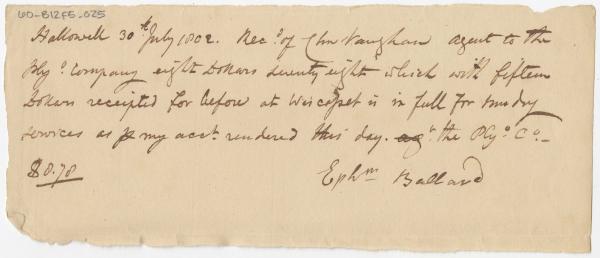 60-B12F5-025
Hallowell 30th July 1802. Recd. of Chs Vaughan agent to the
Plyo. Company eight Dollars seventy eight which with fifteen
Dollars receipted for before at Wiscasset is in full for sundry
services as pr my acct. rendered this day. agt. the Plyo. Co.
$8.78
Ephm Ballard